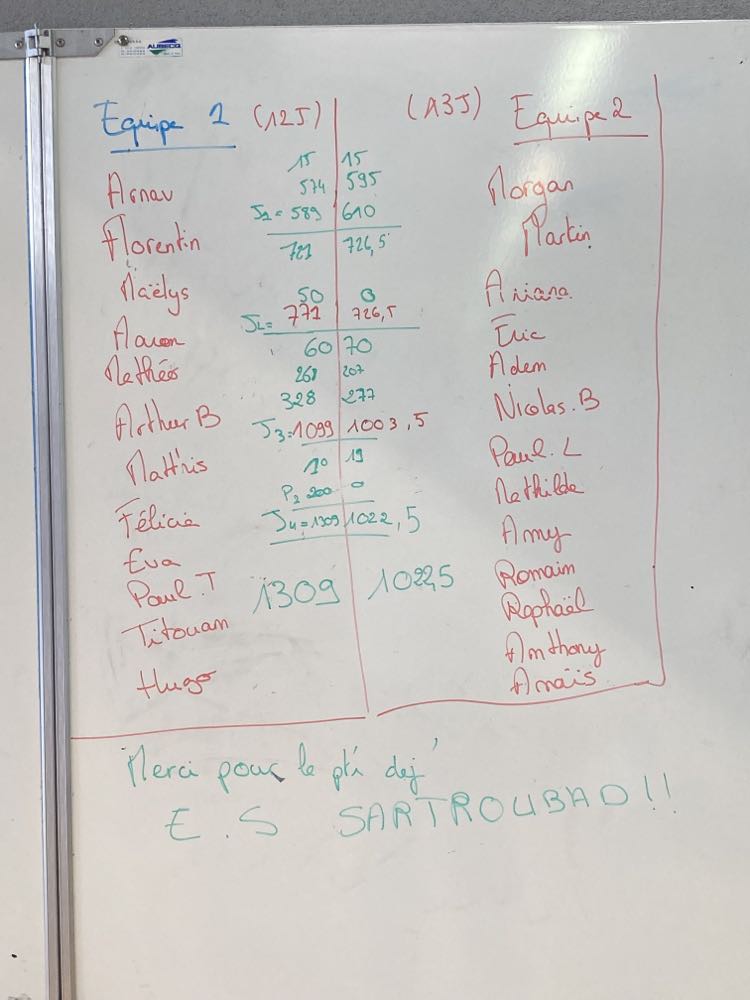 AUBECQ
Equipe 1 (12J) (13J) Equipe 2
15 15
Arnav 574 595 Morgan
J1 = 589 610
Florentin 721 726,5 Martin
Maëlys 50 0 Ariana
J2= 771 726,5
Aaron 60 70 Eric
Mathéo 268 207 Adem
328 277 Nicolas.B
Arthur B J3=1099 1003,5
Mattris 10 19 Paul.L
P2 200 0 Mathilde
Félicie J4=1309 1022,5 Amy
Eva
Paul.T 1309 1022,5 Romain
Titouan Raphaël
Anthony
Hugo Anaïs
Merci pour le pti dej'
E.S SARTROUBAD!!